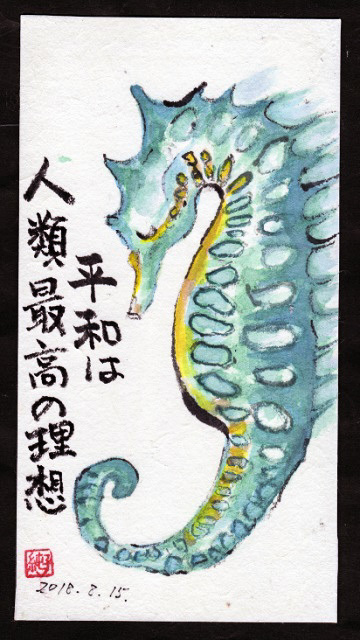 平和は
人類最高の理想
2018.8.15.